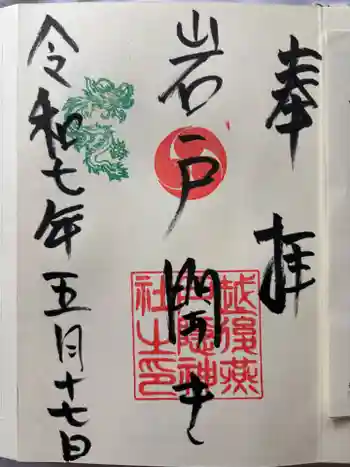 奉拝
岩戸開き
越後燕
戸隠神
社之印
令和七年五月十七日